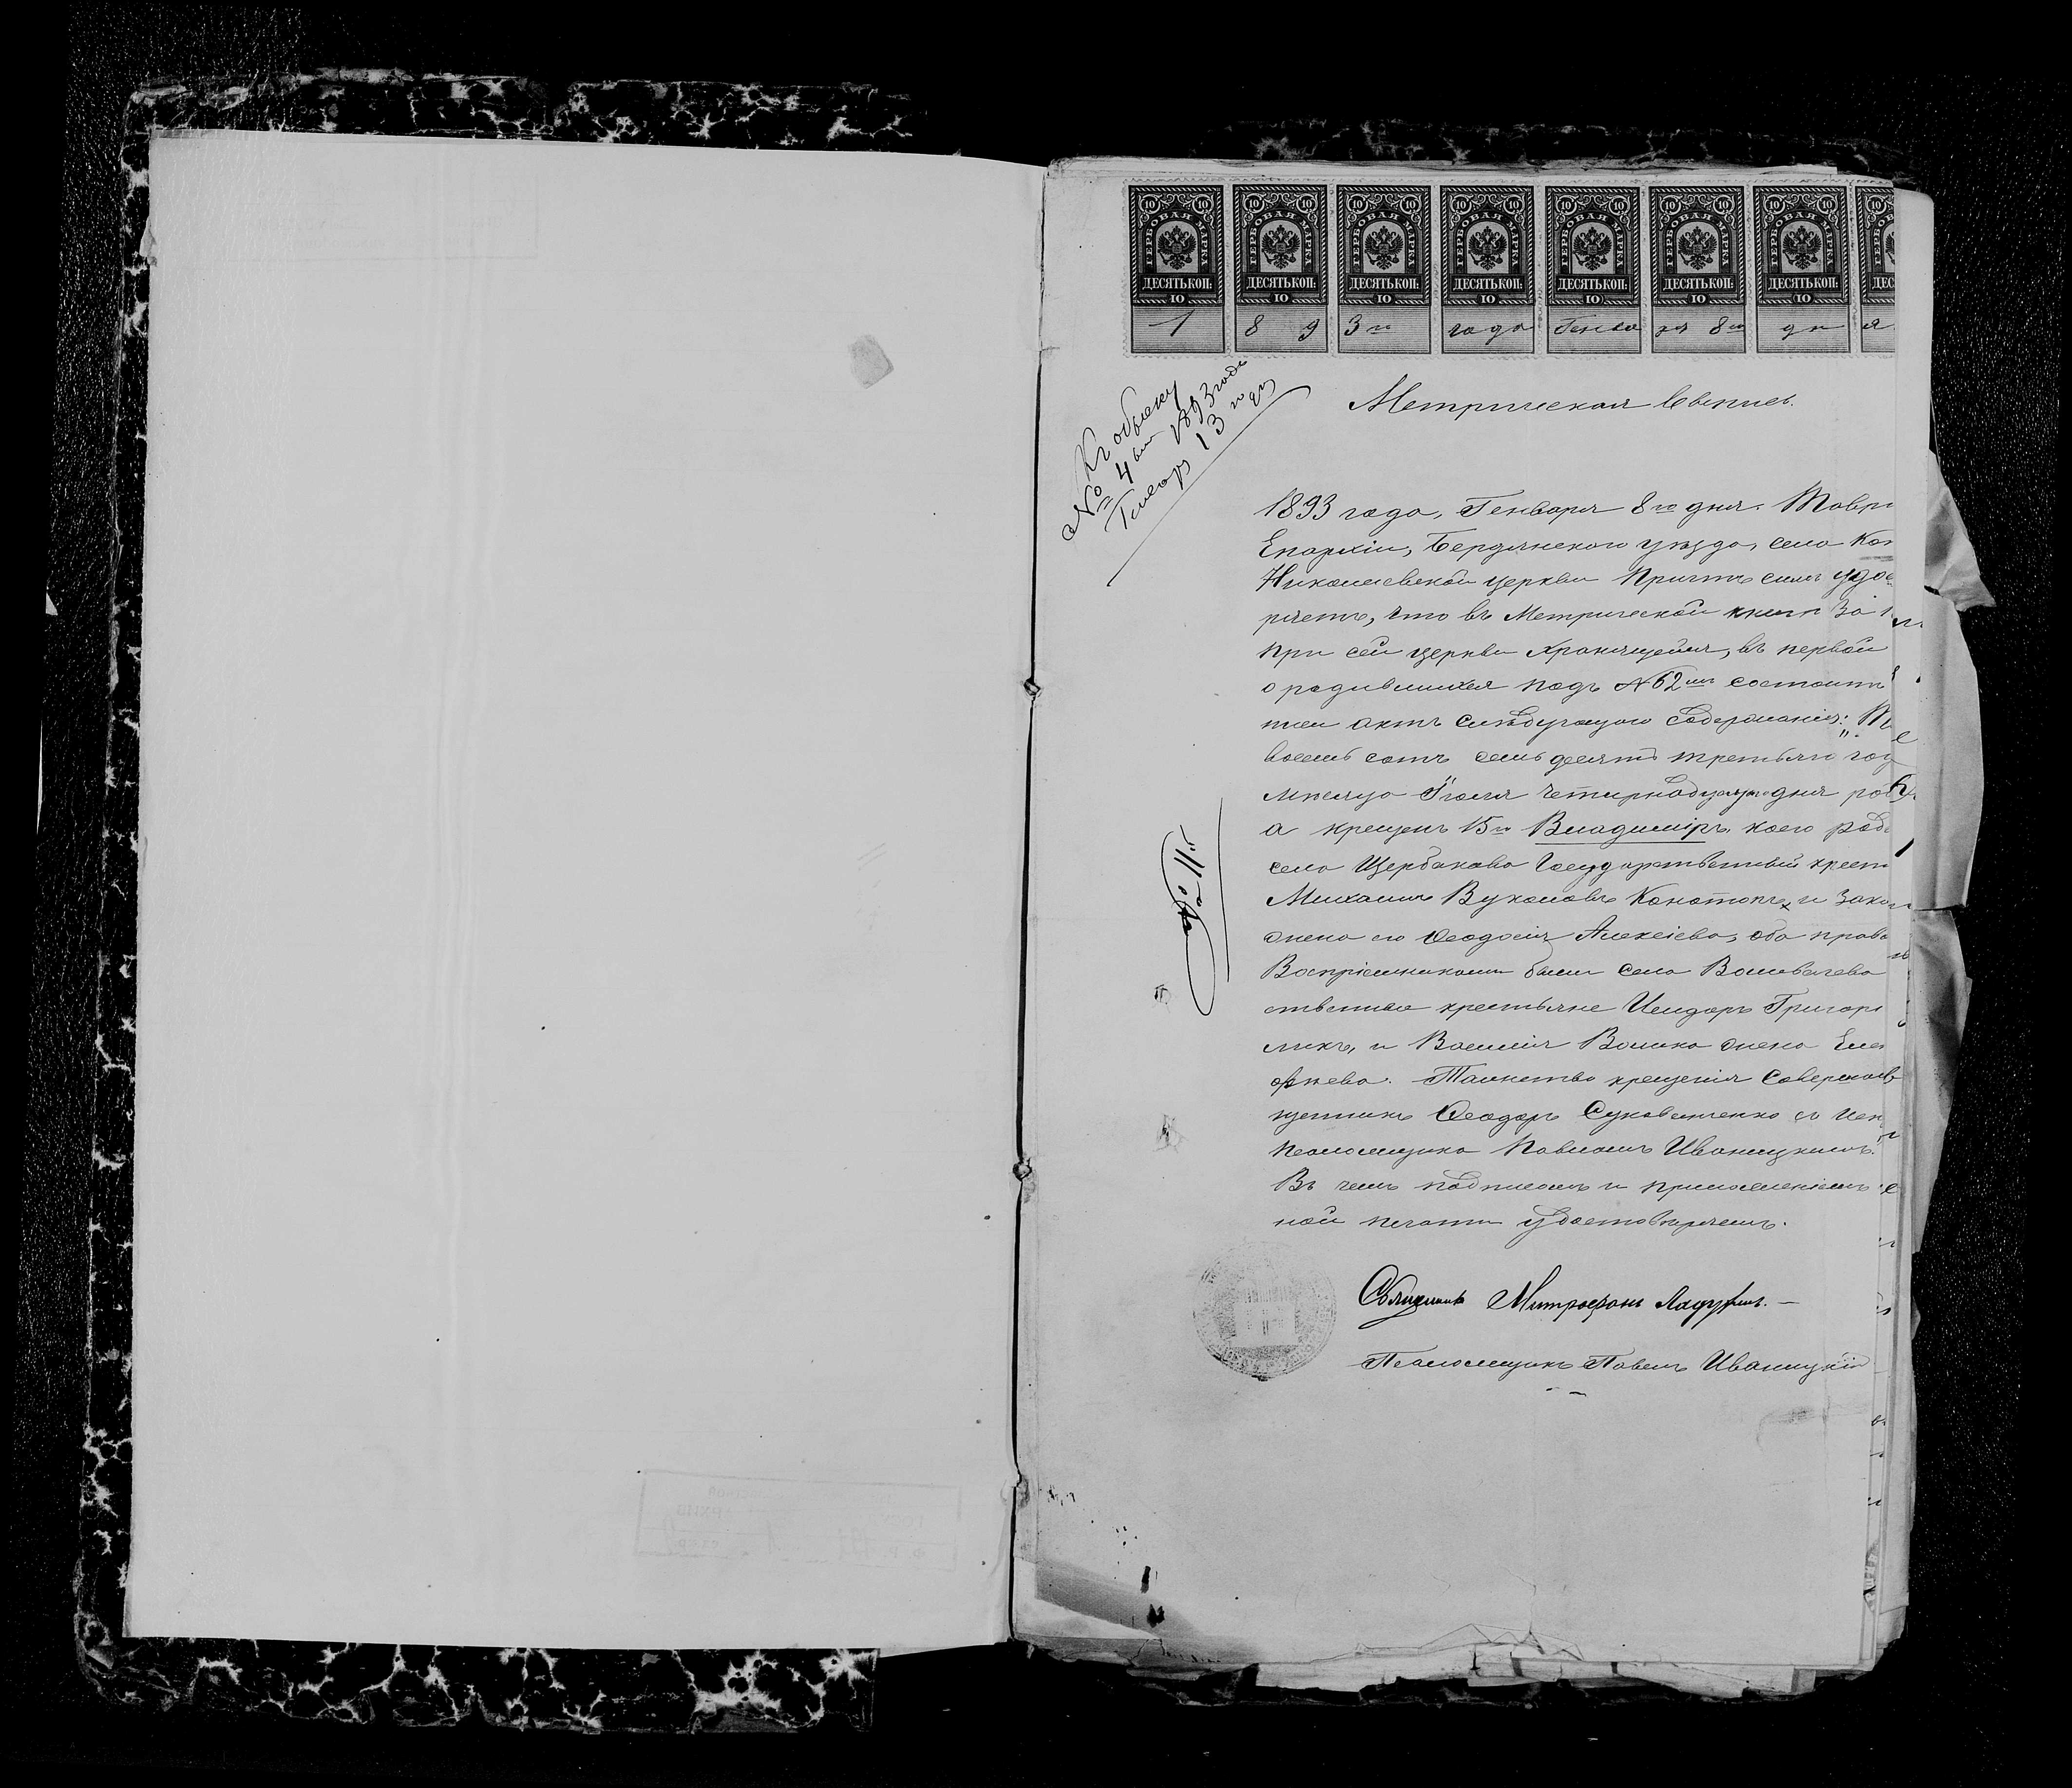 10 10 ГЕРБОВАЯ МАРКА ДЕСЯТЬ КОП. 10
10 10 ГЕРБОВАЯ МАРКА ДЕСЯТЬ КОП. 10
10 10 ГЕРБОВАЯ МАРКА ДЕСЯТЬ КОП. 10
10 10 ГЕРБОВАЯ МАРКА ДЕСЯТЬ КОП. 10
10 10 ГЕРБОВАЯ МАРКА ДЕСЯТЬ КОП. 10
10 10 ГЕРБОВАЯ МАРКА ДЕСЯТЬ КОП. 10
10 10 ГЕРБОВАЯ МАРКА ДЕСЯТЬ КОП. 10
1 8 9 3го года Генва ря 8го дн я
Къ обыску
№ 4 1893 года
Генвар 13го дн
Метрическая Выпись.
1893 года, Генваря 8го дня. Таври
Епархіи, Бердянскаго уѣзда, села
Николаевской церкви Причтъ симъ удос
ряетъ, что въ Метрической книгѣ за
при сей церкви хранящейся, въ первой
о родившихся подъ №62мъ состоитъ
актъ слѣдующаго содержанія:
восемь сотъ семьдесятъ третьяго год
мѣсяца Іюля четырнадцатаго дня ро
а крещенъ 15го Владиміръ, коего род
села Щербакова Государственный крест
Михаилъ Вуколовъ Конотопъ, и зако
жена его Ѳеодосія Алексіева, оба право
Воспріемниками были села
ственные крестьяне Исидоръ Григор
ликъ, и Василія Волика жена Еле
фѣева. Таинство крещенія совершалъ
щенникъ Ѳеодоръ съ
псаломщикомъ Павломъ Иваницкимъ.
Въ чемъ подписомъ и приложеніемъ
ной печати удостовѣряемъ.
Священникъ Митрофанъ
Псаломщикъ Павелъ Иваницкій